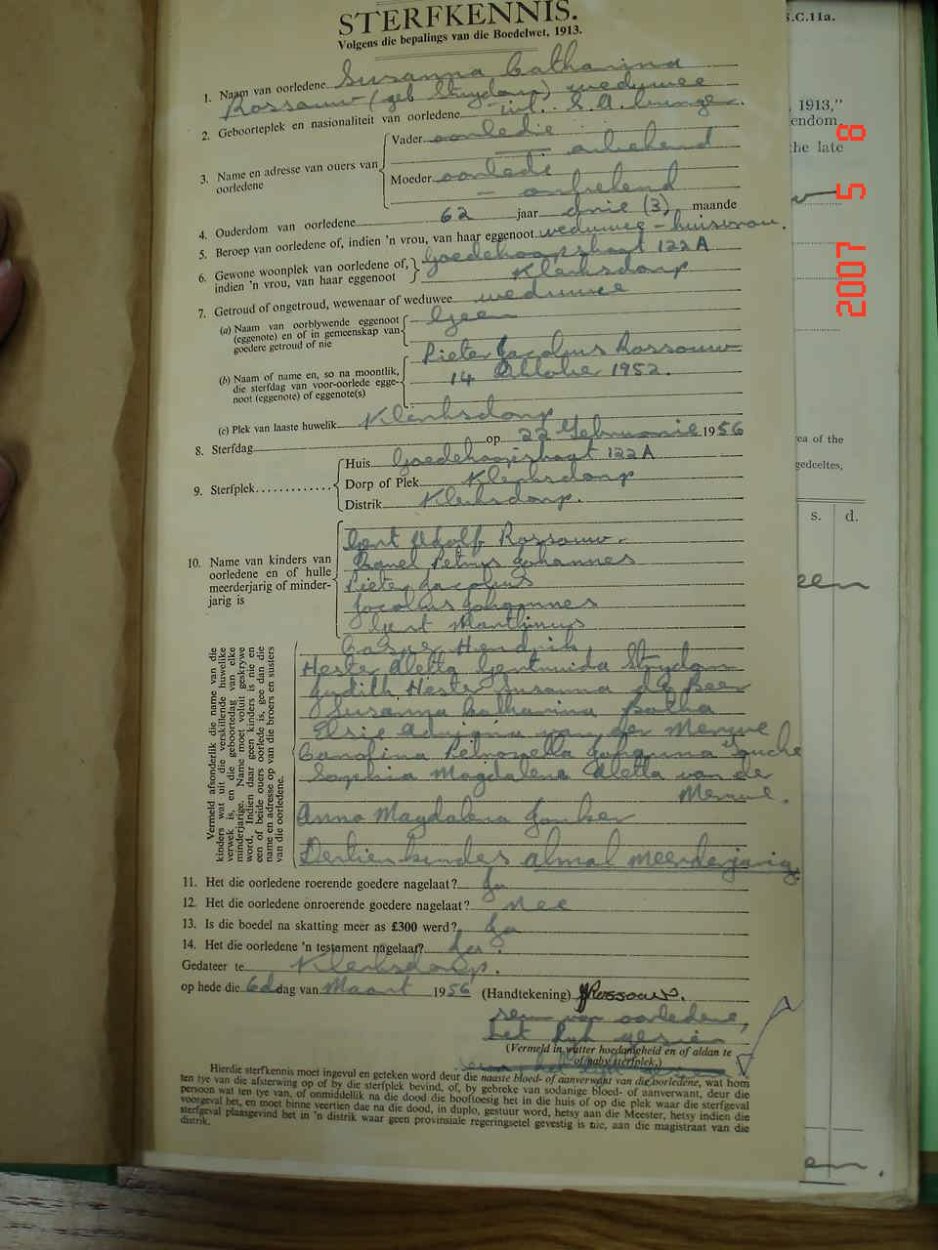 STERFKENNIS.
Volgens die bepalings van die Boedelwet, 1913.
1. Naam van oorledene Susanna Catharina
Rossouw (geb Strydom) weduwee
2. Geboorteplek en nasionaliteit van oorledene S.A. burger.
3. Name en adresse van ouers van oorledene
Vader oorlede
onbekend
Moeder oorlede
— onbekend
4. Ouderdom van oorledene 62 jaar drie (3) maande
5. Beroep van oorledene of, indien 'n vrou, van haar eggenoot weduwee - huisvrou.
6. Gewone woonplek van oorledene of, indien 'n vrou, van haar eggenoot
Goedehoopstraat 122A
Klerksdorp
7. Getroud of ongetroud, wewenaar of weduwee weduwee
(a) Naam van oorblywende eggenoot (eggenote) en of in gemeenskap van goedere getroud of nie
Geen
(b) Naam of name en, so na moontlik, die sterfdag van voor-oorlede eggenoot (eggenote) of eggenote(s)
Pieter Jacobus Rossouw
14 Oktober 1952.
(c) Plek van laaste huwelik Klerksdorp
8. Sterfdag op 22 Februarie 1956
9. Sterfplek
Huis Goedehoopstraat 122A
Dorp of Plek Klerksdorp
Distrik Klerksdorp.
10. Name van kinders van oorledene en of hulle meerderjarig of minderjarig is
Gert Adolf Rossouw.
Petrus Johannes
Pieter Jacobus
Jacobus Johannes
Gert Marthinus
Casper Hendrik
Hester Aletta Gertruida Strydom
Judith Hester Susanna de Beer
Susanna Catharina Botha
Elsie Adriana van der Merwe
Carolina Petronella Johanna Fouche
Sophia Magdalena Aletta van der
Merwe.
Anna Magdalena Jonker
Dertien kinders almal meerderjarig.
Vermeld afsonderlik die name van die
kinders wat uit die verskillende huwelike
verwek is, en die geboortedag van elke
minderjarige. Name moet voluit geskrywe
word. Indien daar geen kinders is nie en
een of beide ouers oorlede is, gee dan die
name en adresse op van die broers en susters
van die oorledene.
11. Het die oorledene roerende goedere nagelaat? Ja
12. Het die oorledene onroerende goedere nagelaat? nee
13. Is die boedel na skatting meer as £300 werd? Ja
14. Het die oorledene 'n testament nagelaat? Ja.
Gedateer te Klerksdorp.
op hede die 6de dag van Maart 1956 (Handtekening) Rossouw.
seun van oorledene,
het lyk gesien
(Vermeld in watter hoedanigheid en of aldan te
of naby sterfplek.)
Hierdie sterfkennis moet ingevul en geteken word deur die naaste bloed- of aanverwant van die oorledene, wat hom
ten tye van die afsterwing op of by die sterfplek bevind, of, by gebreke van sodanige bloed- of aanverwant, deur die
persoon wat ten tye van, of onmiddellik na die dood die hooftoesig het in die huis of op die plek waar die sterfgeval
voorgeval het, en moet binne veertien dae na die dood, in duplo, gestuur word, hetsy aan die Meester, hetsy indien die
sterfgeval plaasgevind het in 'n distrik waar geen provinsiale regeringsetel gevestig is nie, aan die magistraat van die
distrik.
S.C.11a.
, 1913,"
endom
the late
ea of the
gedeeltes,
s. d.
een
en.
2007 5 8